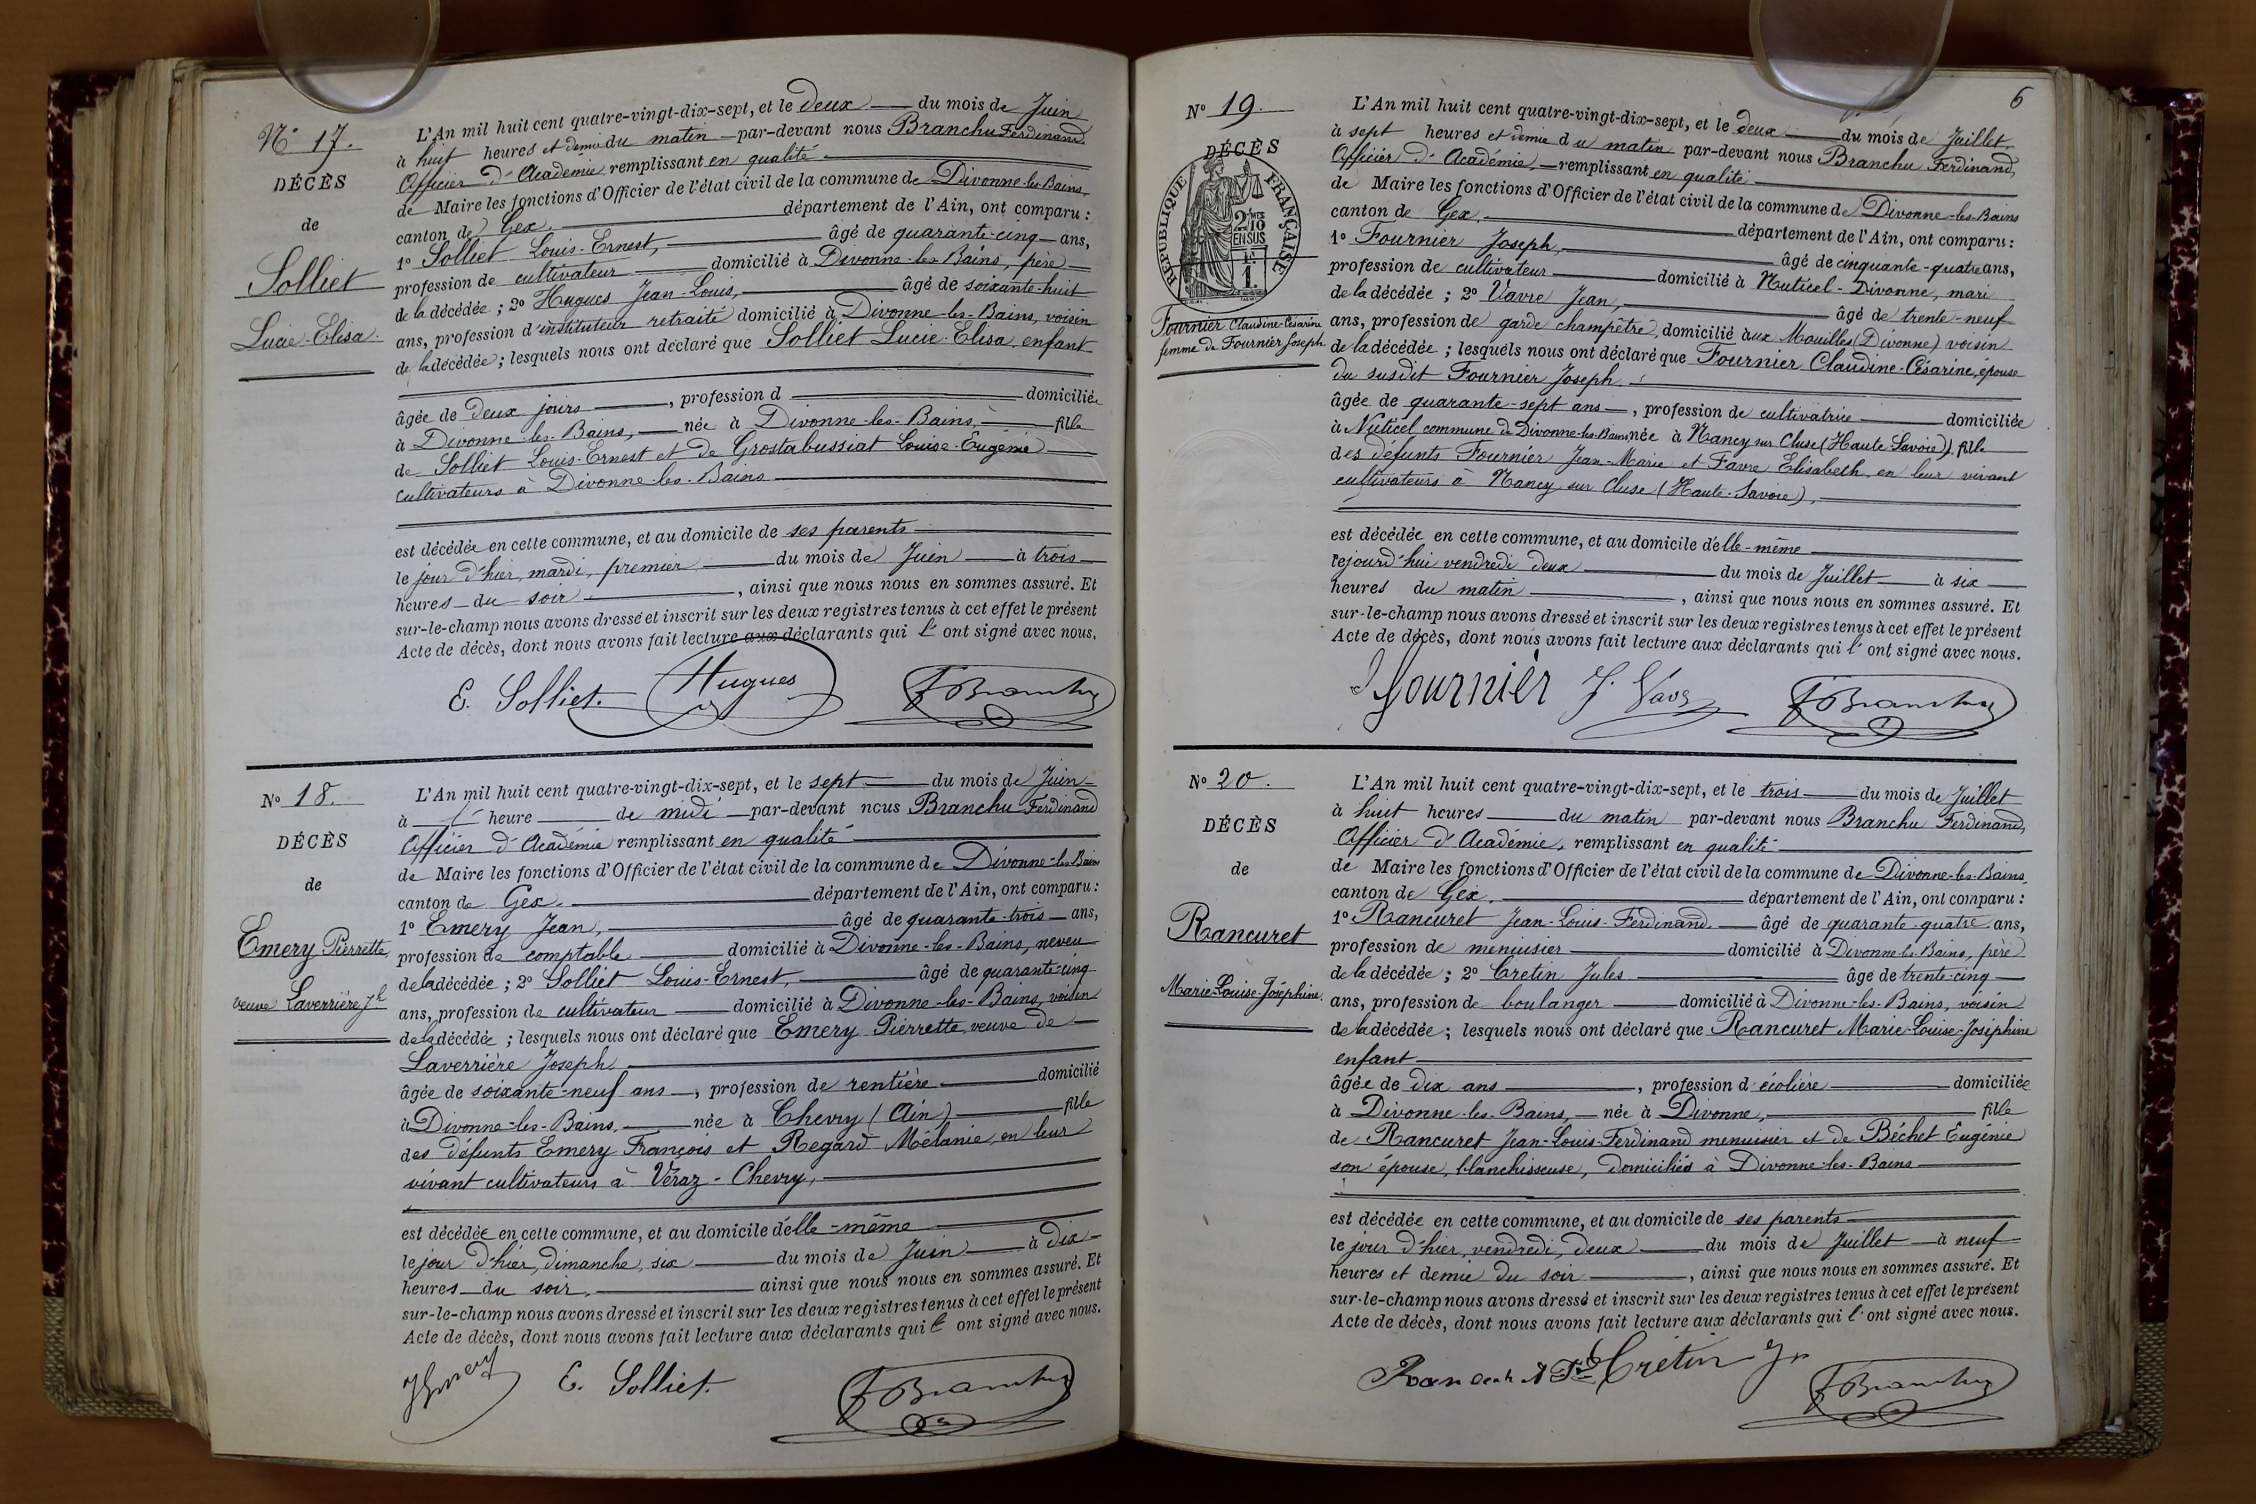 N° 17.
DÉCÈS
de
Solliet
Lucie-Elisa.
L'An mil huit cent quatre-vingt-dix-sept, et le deux du mois de Juin
à huit heures et demie du matin par-devant nous Branchu Ferdinand,
Officier d'Académie remplissant en qualité
de Maire les fonctions d'Officier de l'état civil de la commune de Divonne-les-Bains,
canton de Gex, département de l'Ain, ont comparu :
1° Solliet Louis-Ernest, âgé de quarante-cinq ans,
profession de cultivateur domicilié à Divonne-les-Bains, père
de la décédée ; 2° Hugues Jean-Louis, âgé de soixante-huit
ans, profession d'instituteur retraité domicilié à Divonne-les-Bains, voisin
de la décédée ; lesquels nous ont déclaré que Solliet Lucie-Elisa, enfant
âgée de deux jours, profession d domiciliée
à Divonne-les-Bains, née à Divonne-les-Bains, fille
de Solliet Louis-Ernest et de Grostabussiat Louise-Eugénie
cultivateurs à Divonne-les-Bains
est décédée en cette commune, et au domicile de ses parents
le jour d'hier, mardi, premier du mois de Juin à trois
heures du soir, ainsi que nous nous en sommes assuré. Et
sur-le-champ nous avons dressé et inscrit sur les deux registres tenus à cet effet le présent
Acte de décès, dont nous avons fait lecture aux déclarants qui l'ont signé avec nous.
E. Solliet. Hugues F. Branchu
N° 18.
DÉCÈS
de
Emery Pierrette,
veuve Laverrière Jh
L'An mil huit cent quatre-vingt-dix-sept, et le sept du mois de Juin
à heure de midi par-devant nous Branchu Ferdinand
Officier d'Académie remplissant en qualité
de Maire les fonctions d'Officier de l'état civil de la commune de Divonne-les-Bains
canton de Gex. département de l'Ain, ont comparu :
1° Emery Jean, âgé de quarante-trois ans,
profession de comptable domicilié à Divonne-les-Bains, neveu
de la décédée ; 2° Solliet Louis-Ernest, âgé de quarante-cinq
ans, profession de cultivateur domicilié à Divonne-les-Bains, voisin
de la décédée ; lesquels nous ont déclaré que Emery Pierrette, veuve de
Laverrière Joseph.
âgée de soixante-neuf ans, profession de rentière domicilié
à Divonne-les-Bains, née à Chevry (Ain) fille
des défunts Emery François et Regard Mélanie, en leur
vivant cultivateurs à Véraz-Chevry,
est décédée en cette commune, et au domicile d'elle-même
le jour d'hier, dimanche, six du mois de Juin à dix
heures du soir, ainsi que nous nous en sommes assuré. Et
sur-le-champ nous avons dressé et inscrit sur les deux registres tenus à cet effet le présent
Acte de décès, dont nous avons fait lecture aux déclarants qui l'ont signé avec nous.
JEmery E. Solliet. F. Branchu
6
N° 19.
DÉCÈS
RÉPUBLIQUE FRANÇAISE
2/10
EN SUS
1.
Fournier Claudine-Césarine
femme de Fournier Joseph
L'An mil huit cent quatre-vingt-dix-sept, et le deux du mois de Juillet,
à sept heures et demie du matin par-devant nous Branchu Ferdinand,
Officier d'Académie, remplissant en qualité
de Maire les fonctions d'Officier de l'état civil de la commune de Divonne-les-Bains
canton de Gex, département de l'Ain, ont comparu :
1° Fournier Joseph, âgé de cinquante-quatre ans,
profession de cultivateur domicilié à Nuticel-Divonne, mari
de la décédée ; 2° Vavre Jean, âgé de trente-neuf
ans, profession de garde champêtre, domicilié aux Mouilles (Divonne) voisin
de la décédée ; lesquels nous ont déclaré que Fournier Claudine-Césarine, épouse
du susdit Fournier Joseph.
âgée de quarante-sept ans, profession de cultivatrice domiciliée
à Nuticel commune de Divonne-les-Bains née à Nancy sur Cluse (Haute-Savoie) fille
des défunts Fournier Jean-Marie et Favre Elisabeth, en leur vivant
cultivateurs à Nancy sur Cluse (Haute-Savoie),
est décédée en cette commune, et au domicile d'elle-même
cejourd'hui vendredi deux du mois de Juillet à six
heures du matin, ainsi que nous nous en sommes assuré. Et
sur-le-champ nous avons dressé et inscrit sur les deux registres tenus à cet effet le présent
Acte de décès, dont nous avons fait lecture aux déclarants qui l'ont signé avec nous.
Fournier J. Vavr F. Branchu
N° 20.
DÉCÈS
de
Rancuret
Marie-Louise-Joséphine.
L'An mil huit cent quatre-vingt-dix-sept, et le trois du mois de Juillet
à huit heures du matin par-devant nous Branchu Ferdinand,
Officier d'Académie, remplissant en qualité
de Maire les fonctions d'Officier de l'état civil de la commune de Divonne-les-Bains,
canton de Gex. département de l'Ain, ont comparu :
1° Rancuret Jean-Louis-Ferdinand âgé de quarante-quatre ans,
profession de menuisier domicilié à Divonne-les-Bains, père
de la décédée ; 2° Cretin Jules âgé de trente-cinq
ans, profession de boulanger domicilié à Divonne-les-Bains, voisin
de la décédée ; lesquels nous ont déclaré que Rancuret Marie-Louise-Joséphine
enfant
âgée de dix ans, profession d'écolière domiciliée
à Divonne-les-Bains, née à Divonne, fille
de Rancuret Jean-Louis-Ferdinand menuisier et de Béchet Eugénie
son épouse, blanchisseuse, domiciliés à Divonne-les-Bains
est décédée en cette commune, et au domicile de ses parents
le jour d'hier, vendredi, deux du mois de Juillet à neuf
heures et demie du soir, ainsi que nous nous en sommes assuré. Et
sur-le-champ nous avons dressé et inscrit sur les deux registres tenus à cet effet le présent
Acte de décès, dont nous avons fait lecture aux déclarants qui l'ont signé avec nous.
Crétin F. Branchu